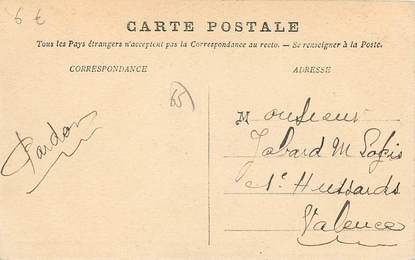 6 €
CARTE POSTALE
Tous les Pays étrangers n'acceptent pas la Correspondance au recto. — Se renseigner à la Poste.
CORRESPONDANCE
ADRESSE
65
Pardon
Monsieur
Jobard M Logis
Hussards
Valence